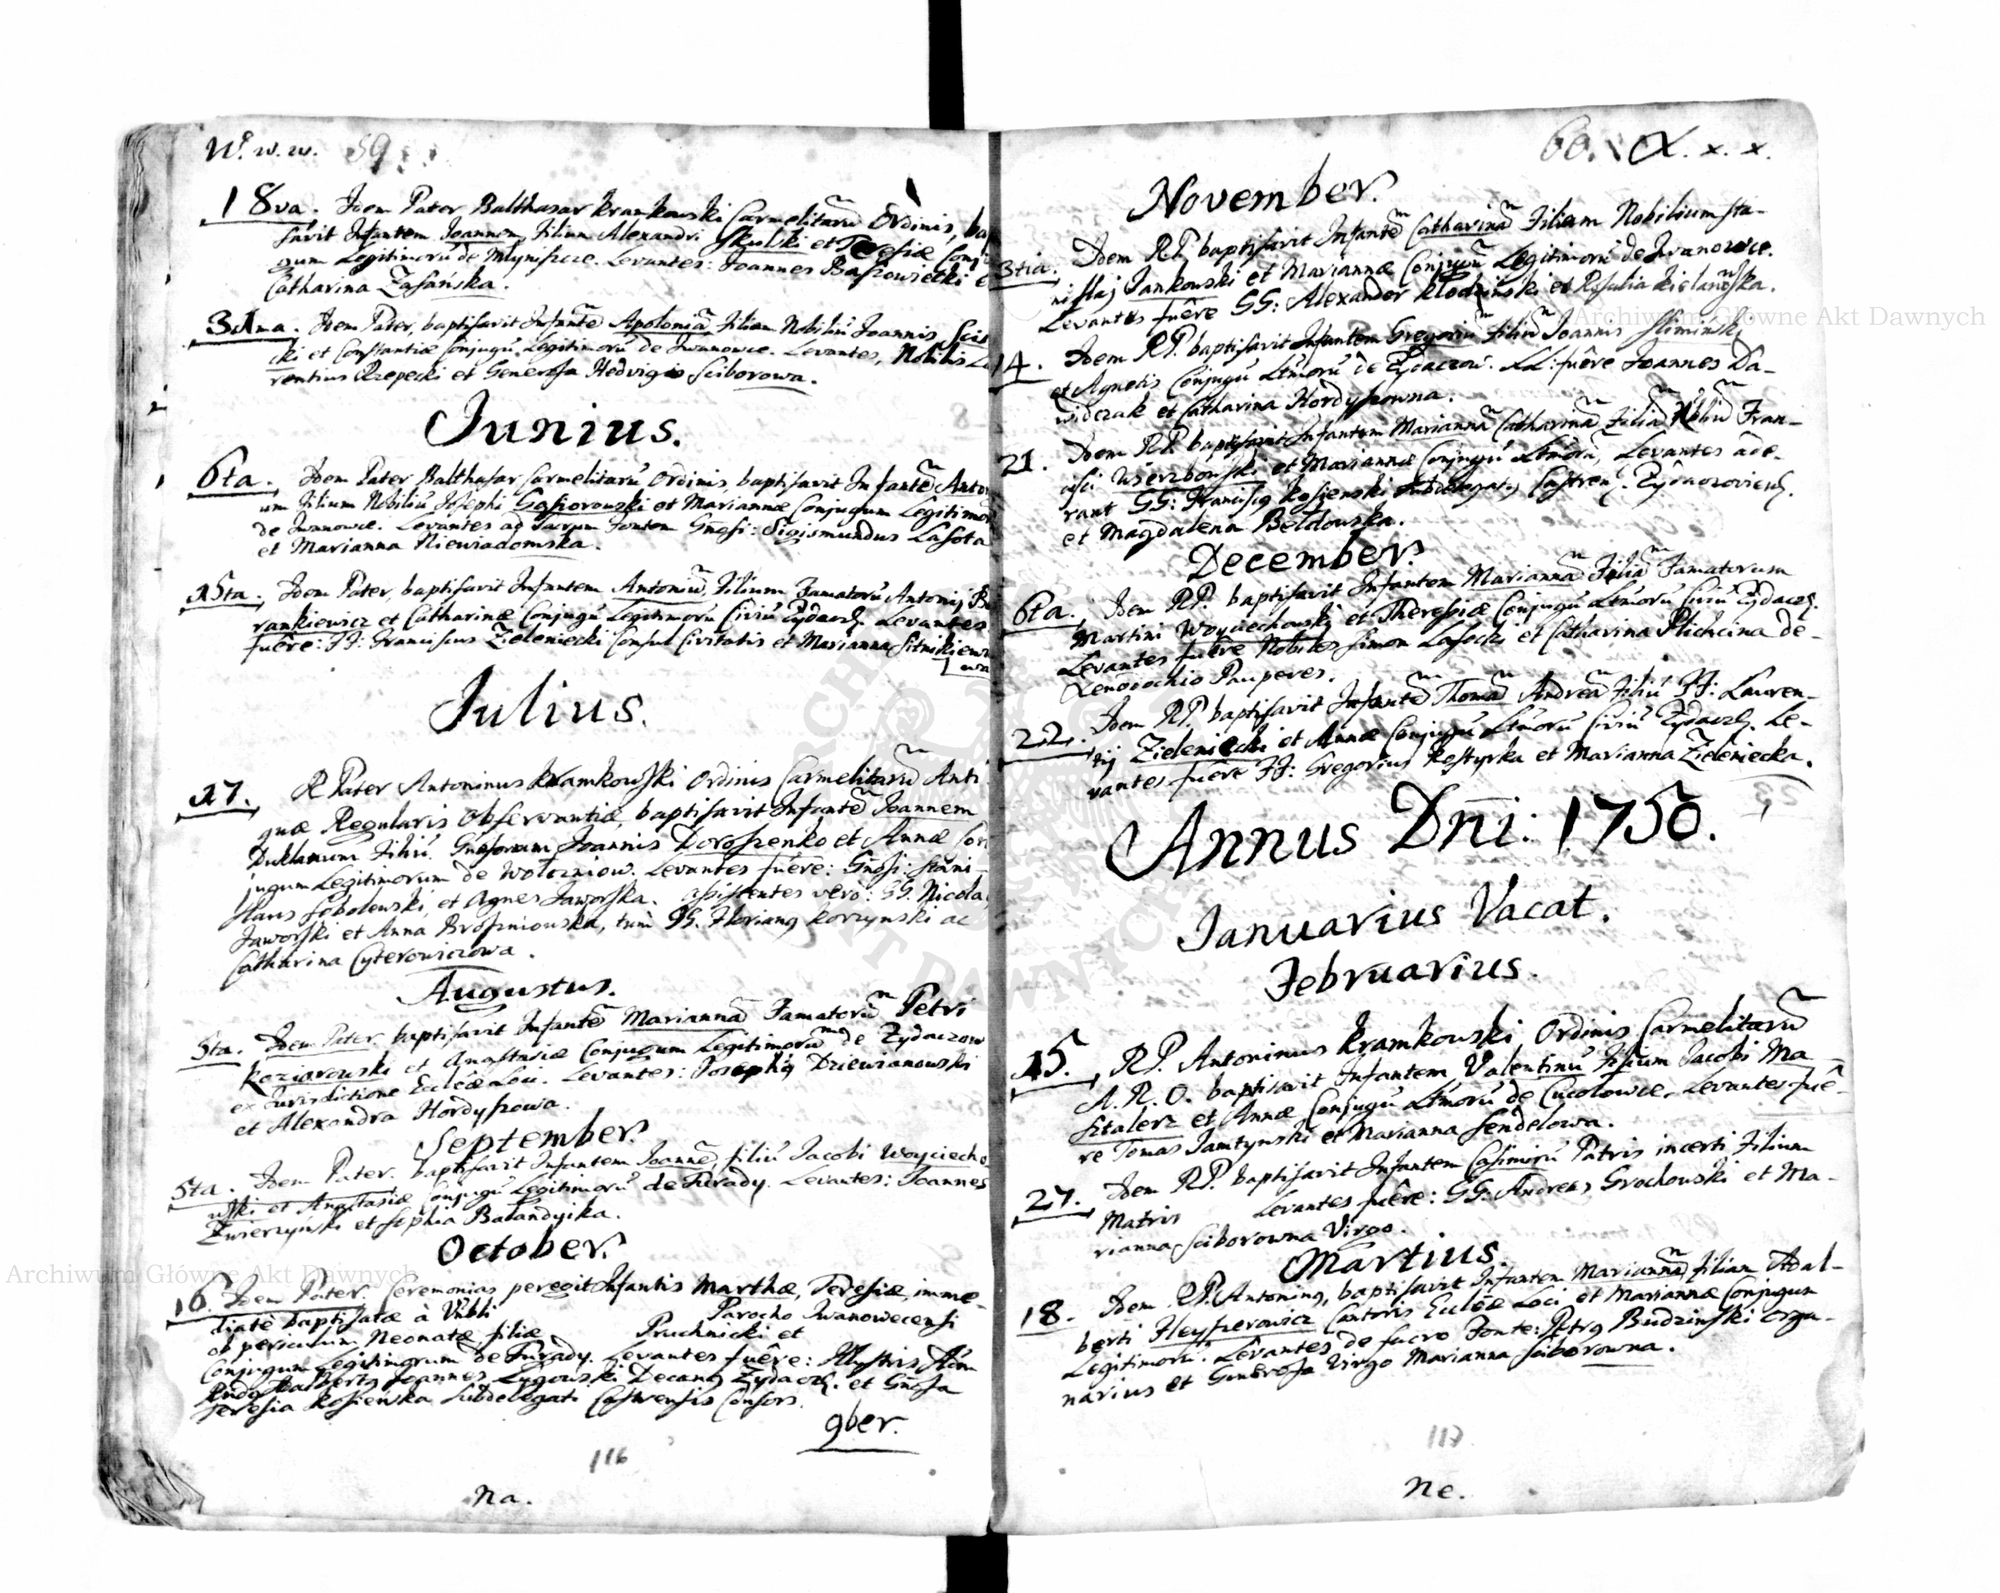 W. w. w. 59
18va. Idem Pater Balthasar Kramkowski Carmelitarū Ordinis, bap
savit Infantem Joannem, Filium Alexandri Skulski et Teresiæ Conju
gum Legitimorū de Mlyniszcze. Levantes: Joannes Baszowiecki e
Catharina Zasańska.
31ma. Idem Pater, baptisavit Infantē Apoloniā Filiam Nobiliū Joannis Scis
cki et Constantiæ Conjugū Legitimorū de Iwanowce. Levantes, Nobilis La
rentius Rzepecki et Generosa Hedvigis Sciborowa.
Junius.
6ta. Idem Pater Balthasar Carmelitarū Ordinis, baptisavit Infantē Anton
um Filium Nobiliū Josephi Gąsiorowski et Mariannæ Conjugum Legitimor
de Iwanowce. Levantes ad Sacrum Fontem Gnosi: Sigismundus Lasota
et Marianna Niewiadomska.
15ta. Idem Pater, baptisavit Infantem Antoniū, Filium Famatorū Antonij Bu
rankiewicz et Catharinæ Conjugū Legitimorū Civiū Zydacz. Levantes
fuêre: FF: Franciscus Zieleniecki Consul Civitatis et Marianna Sitnikiewi
owa
Julius.
27. R Pater Antoninus Kramkowski Ordinis Carmelitarū Anti
quæ Regularis Observantiæ, baptisavit Infantē Joannem
Duklanum Filiū. Gnosorum Joannis Doroszenko et Annæ Con
jugum Legitimorum de Wolczniow. Levantes fuêre: Gnosi: Stani
slaus Sobolewski, et Agnes Jaworska. assistentes verò: GG. Nicola
Jaworski et Anna Broszniowska, tum GG. Florianq Korzynski ac
Catharina Cyterowiczowa.
Augustus.
5ta. Idem Pater, baptisavit Infantē Mariannā Famatorū Petri
Koziarowski et Anastasiæ Conjugum Legitimorū de Zydaczow
ex Jurisdictione Ecclêæ Loci. Levantes: Josephq Dziewianowski
et Alexandra Hordyszowa.
September.
5ta. Idem Pater. baptisavit Infantem Joannē, filiū Jacobi Woyciecho
wski et Anastasiæ Conjugū Legitimorū de Turady. Levantes: Joannes
Zwierzyński et Sophia Balandyika.
October.
16. Idem Pater, Ceremonias peregit Infantis Marthæ, Teresiæ, imme-
diatè baptisatæ à Vnbli Parocho Iwanowecensi
ob periculum Neonatæ filiæ Pruchnicki et
Conjugum Legitimorum de Turady. Levantes fuêre: Illustris
Adalbertq Joannes Lygowski Decanq Zydacz. et Gnosa
Teresia Kosieńska Subdelegati Castrensis Consors.
9ber.
116
Na.
60. X. x. x.
November.
3tia. Idem R.P. baptisavit Infantē Catharinā Filiam Nobilium Sta-
nislaj Jankowski et Mariannæ Conjugū Legitimorū de Iwanowce.
Levantes fuêre GG: Alexander Kłodziński et Rosalia Kielanowska.
14. Idem R.P. baptisavit Infantem Gregoriū filiū Joannis Sliminski
et Agnetis Conjugū Ltmorū de Zydaczow. LL: fuêre Joannes Da-
widczak et Catharina Hordyszowna.
21. Idem R.P. baptisavit Infantem Mariannā Catharinā Filiā Nbliū Fran-
cisci Wierzbowski et Mariannæ Conjugū Ltmorū, Levantes ade-
rant GG: Franciscq Kosienski Subdelegatq Castren. Zydaczovien.
et Magdalena Beldowska.
December.
6ta. Idem R.P. baptisavit Infantem Mariannā Filiā Famatorum
Martini Woyciechowski et Theresiæ Conjugū Ltmorū Civiū Zydacz.
Levantes fuêre Nobiles Simon Lasocki et Catharina Plichcina de-
Xenodochio Pauperes.
22. Idem R.P. baptisavit Infantē Thomā Andreā Filiū FF: Lauren-
tij Zieleniecki et Annæ Conjugū Ltmorū Civiū Zydacz. Le-
vantes fuêre FF: Gregorius Kostyrka et Marianna Zieleniecka.
Annus Dñi: 1750.
Januarius Vacat.
Februarius.
15. R.P. Antoninus Kramkowski Ordinis Carmelitarū
A. R. O. baptisavit Infantem Valentinū Filium Jacobi Ma-
sztalerz et Annæ Conjugū Ltmorū de Cucolowce, Levantes fuê-
re Tomas Jamtynski et Marianna Sendelowa.
27. Idem R.P. baptisavit Infantem Casimirū Patris incerti Filium
Matris Levantes fuêre: GG: Andreas Grochowski et Ma-
rianna Sciborowna Virgo.
Martius.
18. Idem R.P. Antoninq, baptisavit Infantem Mariannā filiam Adal-
berti Heyszerowicz Cantoris Ecclêæ Loci et Mariannæ Conjugum
Legitimorū. Levantes de Sacro Fonte: Petrq Budzinski orga-
narius et Generosa Virgo Marianna Sciborowna.
117
Ne.